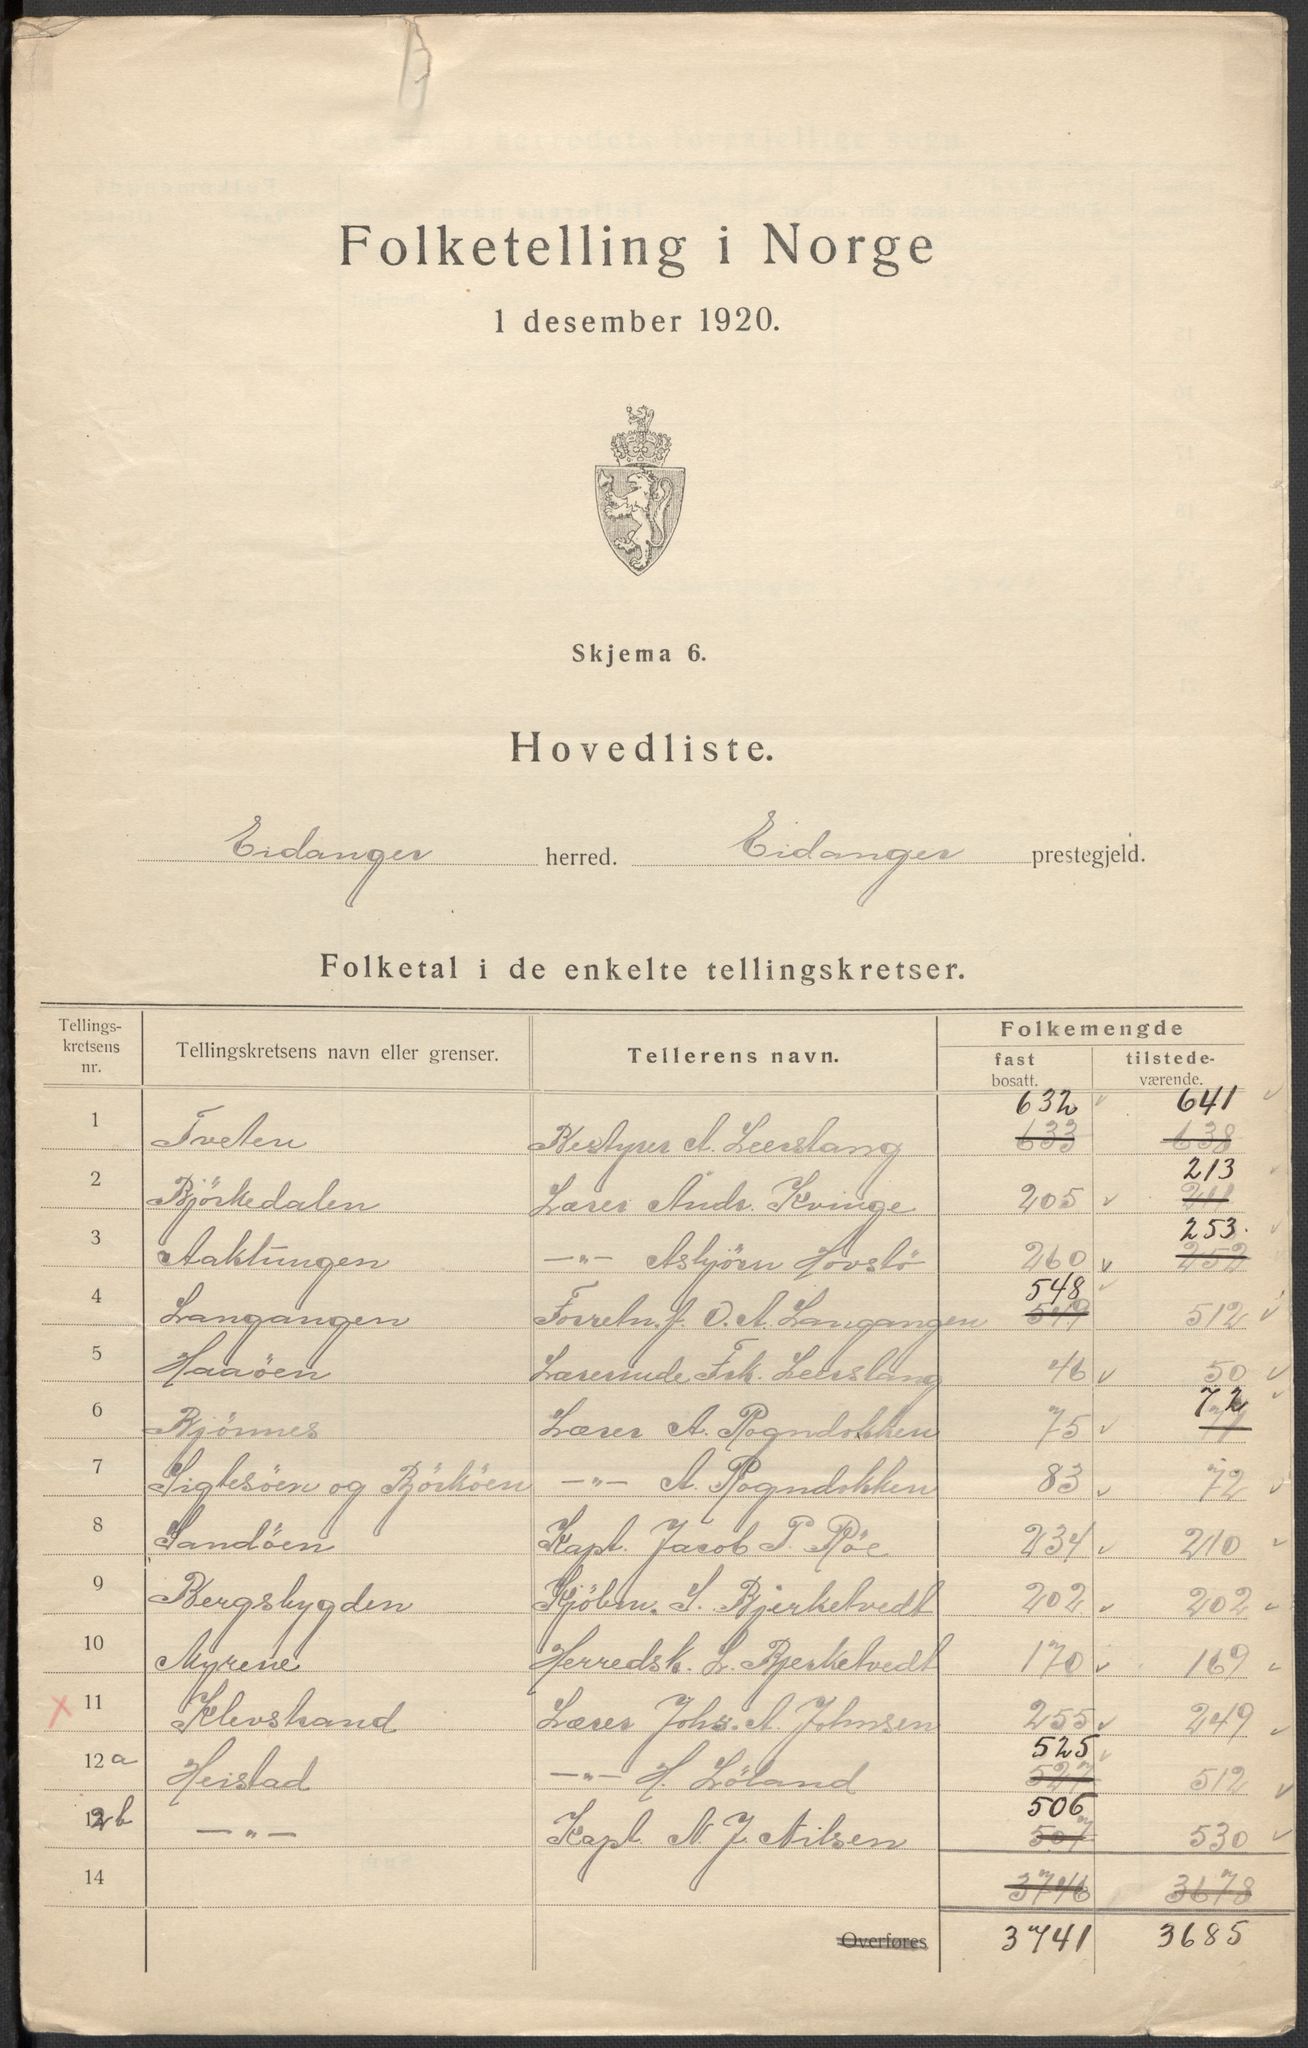 Folketelling i Norge
1 desember 1920.
Skjema 6.
Hovedliste.
Eidanger herred. Eidanger prestegjeld.
Folketal i de enkelte tellingskretser.
Tellings-kretsens nr. Tellingskretsens navn eller grenser. Tellerens navn. Folkemengde
fast bosatt. tilstede-værende.
632 641
1 Tveten Bestyrer A. Leerstang 633 638
213
2 Björkedalen Lærer Andr. Kvinge 205 211
253.
3 Aaklungen —"— Asbjörn Hovslö 260 252
548
4 Langangen Forretn.f. O. A. Langangen 549 512
5 Haaöen Lærerinde Frk. Leerstang 46 50
72
6 Bjönnes Lærer A. Rogndokken 75 71
7 Siglesöen og Björköen —"— A. Rogndokken 83 72
8 Sandöen Kapt. Jacob P. Röe 234 210
9 Bergsbygden Kjöbm. S. Bjerketvedt 202 202
10 Myrene Herredsk. L. Bjerketvedt 170 169
11 Klevstrand Lærer Johs. A. Johnsen 255 249
525
12a Heistad —"— H. Löland 527 512
506
12b —"— Kapt. N. J. Nilsen 507 530
14 3746 3678
Overføres 3741 3685